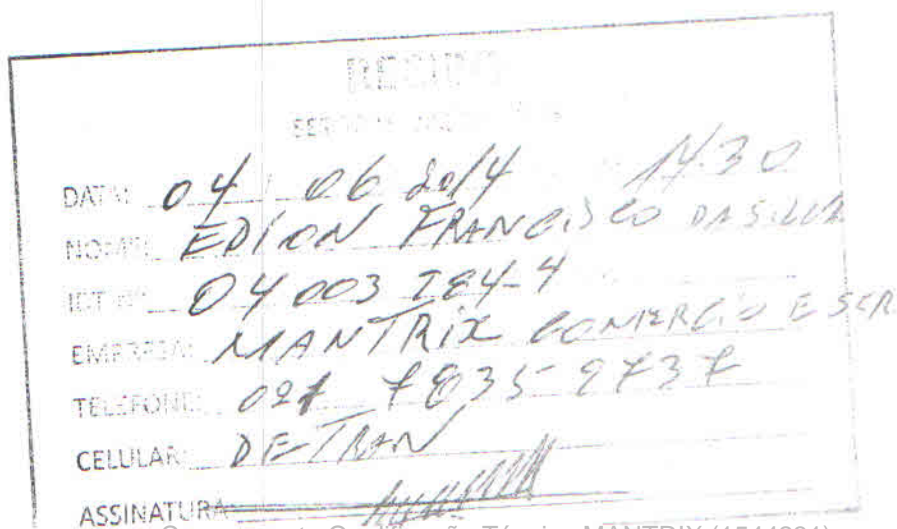 RECIBO
DATA: 04 / 06 2014 1430
NOME: EDISON FRANCISCO DA SILVA
IDT Nº 04003284-4
EMPRESA: MANTRIX COMERCIO E SER
TELEFONE: 021 7835-9737
CELULAR: DETRAN
ASSINATURA
MANTRIX